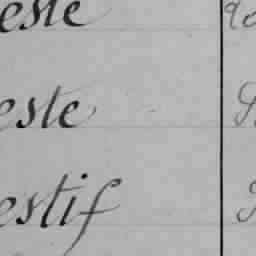 este
este
estif